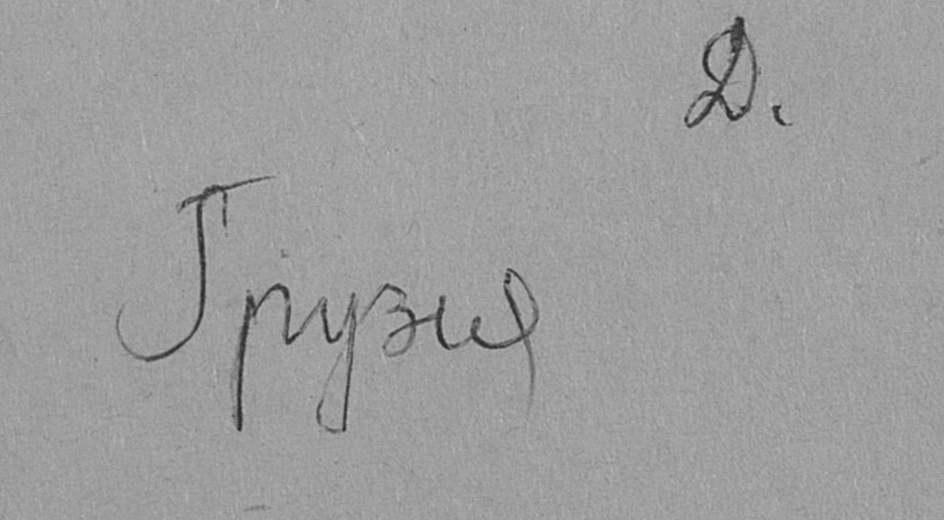 Д.
Грузия